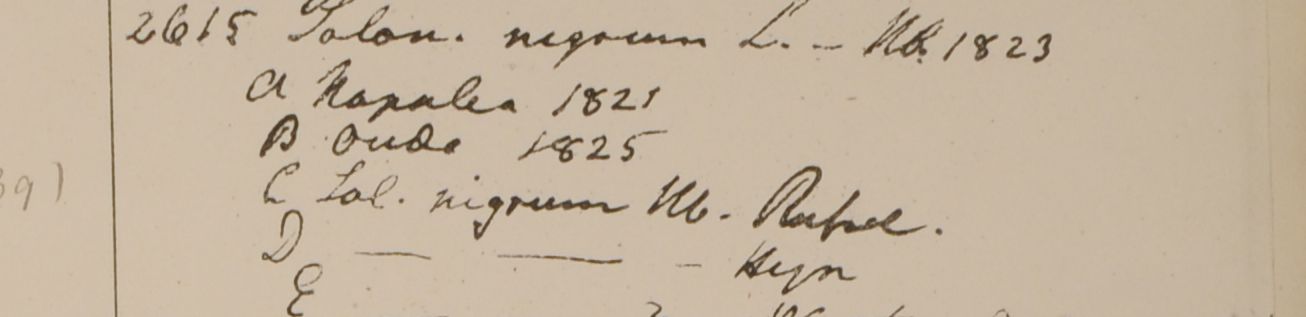 2615 Solan. nigrum L. – Hb. 1823
a Napalea 1821
B Oude 1825
C Sol. nigrum Hb.
D — — – Heyn
E
39)